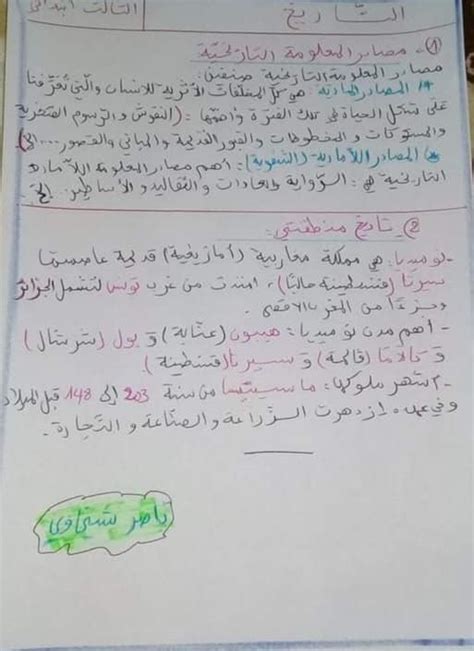 التاريخ
الثالث ابتدائي
1- مصادر المعلومة التاريخية:
مصادر المعلومة التاريخية صنفين:
1* المصادر المادية: هي كل المخلفات الأثرية للإنسان والتي تعرفنا
على شكل الحياة في تلك الفترة وأهمها: (النقوش والرسوم الصخرية
والمسكوكات والمخطوطات والقبور القديمة والمباني والقصور....الخ).
2* المصادر اللامادية (الشفوية): أهم مصادر المعلومة اللامادية
التاريخية هي: الرواية والعادات والتقاليد والأساطير... الخ.
2- تاريخ منطقتي:
- نوميديا: هي مملكة مغاربية (أمازيغية) قديمة عاصمتها
سيرتا (قسنطينة حاليا)، امتدت من غرب تونس لتشمل الجزائر
وجزءًا من المغرب الأقصى.
- أهم مدن نوميديا: هيبون (عنابة) و يول (شرشال)
و كالاما (قالمة) و سيرتا (قسنطينة)
- أشهر ملوكها: ماسينيسا من سنة 203 إلى 148 قبل الميلاد
وفي عهده ازدهرت الزراعة والصناعة والتجارة.
ناصر شنخاوي